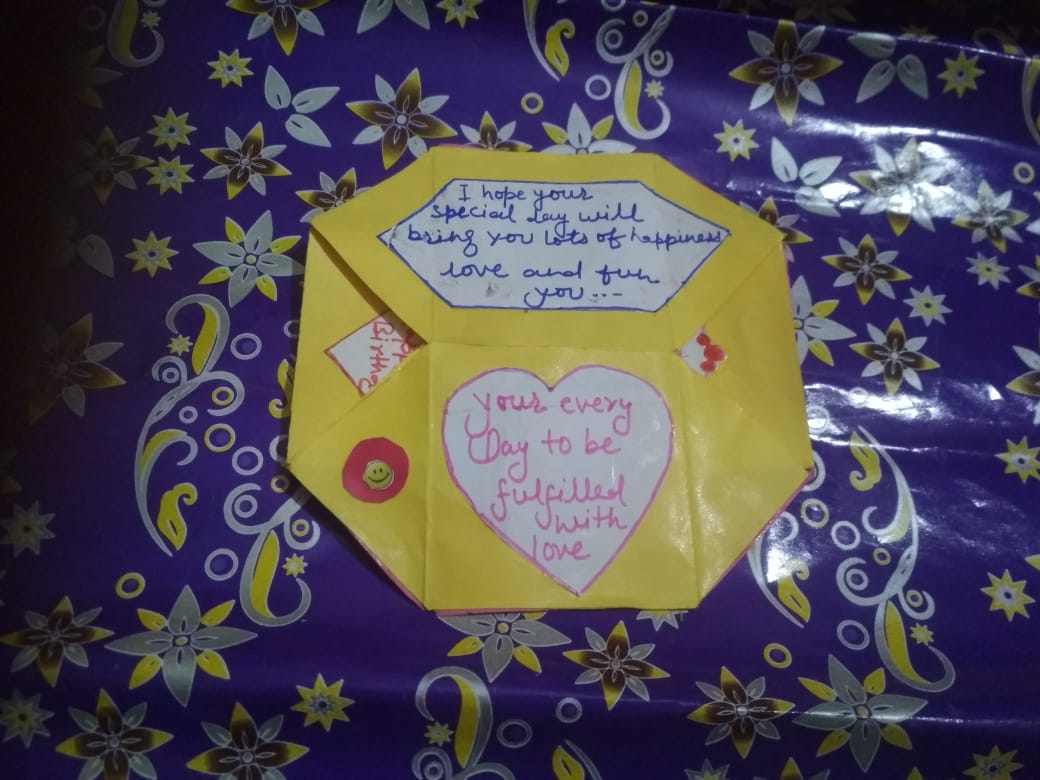 I hope your
special day will
bring you lots of happiness
love and fun
you...
your every
Day to be
fulfilled
with
love